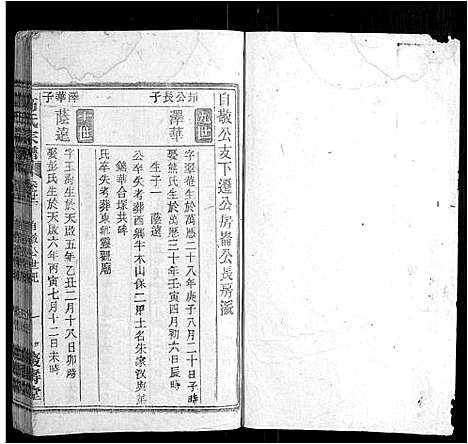 自敬公支下遷公房崙公長房派
公長子
九世
澤華
字翠菴生於萬曆二十八年庚子八月二十日子時
娶熊氏生於萬曆三十年壬寅四月初六日辰時
生子一 蔭遠
公卒失考葬酉鄉牛木山保二甲土名朱家汊與弟
錦華合塚共碑
氏卒失考葬東北靈觀廟
澤華子
十世
蔭遠
字玉高生於天啟五年乙丑二月十八日卯時
娶彭氏生於天啟六年丙寅七月十二日未時
氏宗譜
自敬公世紀
慶壽堂